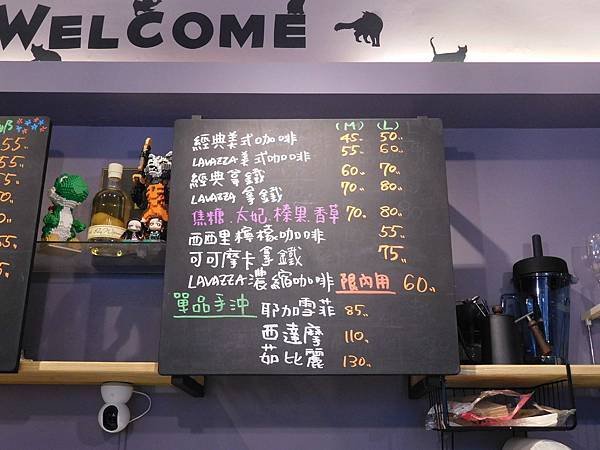 WELCOME
(M) (L)
經典美式咖啡 45 50
LAVAZZA 美式咖啡 55 60
經典拿鐵 60 70
LAVAZZA 拿鐵 70 80
焦糖、太妃、榛果、香草 70 80
西西里檸檬咖啡 55
可可摩卡拿鐵 75
LAVAZZA 濃縮咖啡 限內用 60
單品手沖 耶加雪菲 85
西達摩 110
茹比麗 130
55
55